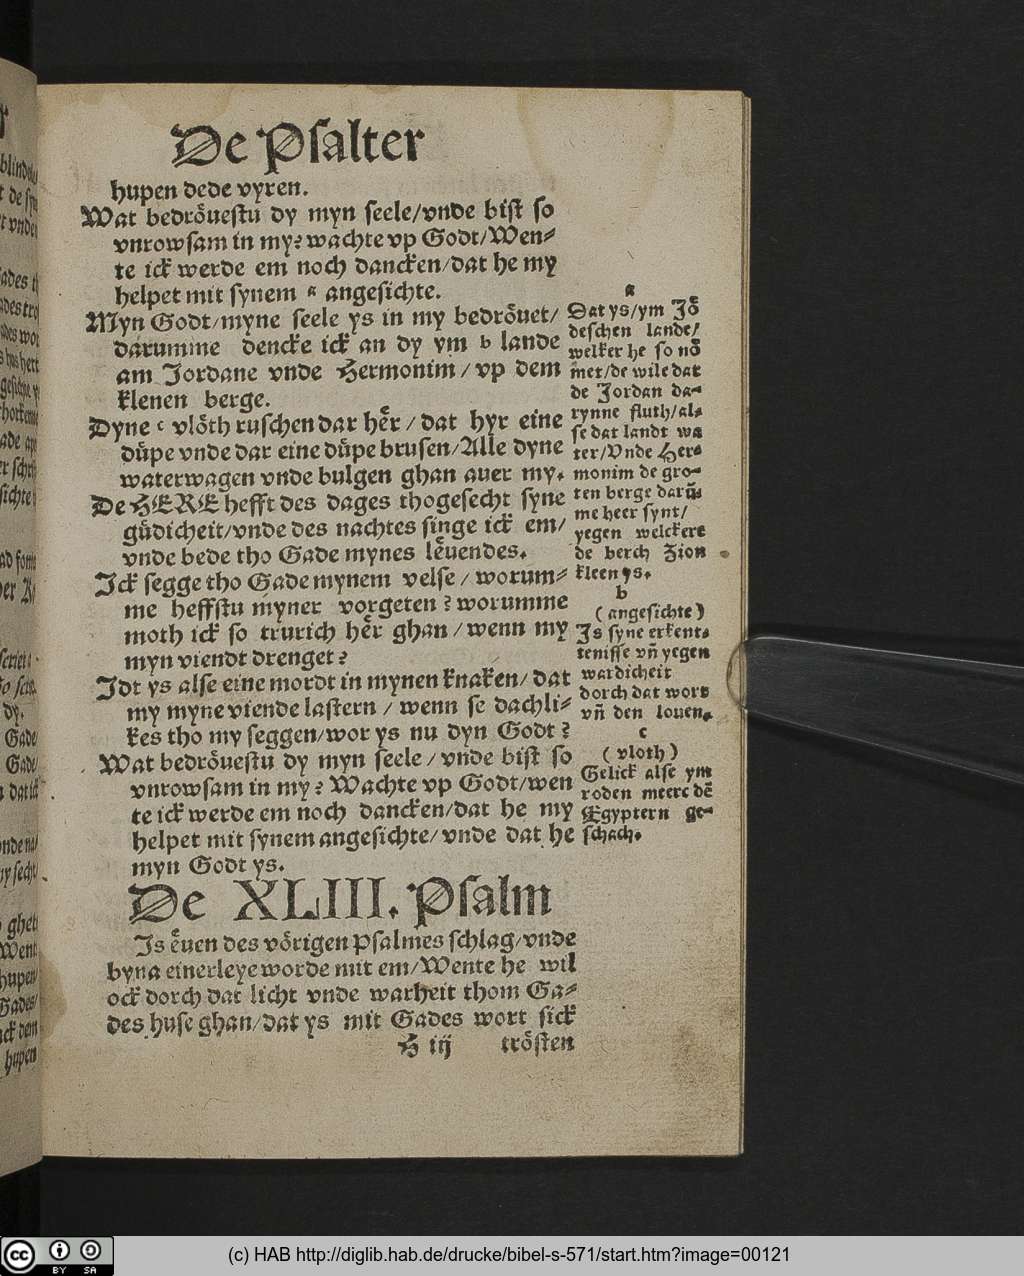 De Psalter
hupen dede vyren.
Wat bedroͤuestu dy myn seele/vnde bist so
vnrowsam in my? wachte vp Godt/Wen⸗
te ick werde em noch dancken/dat he my
helpet mit synem a angesichte.
Myn Godt/myne seele ys in my bedroͤuet/
darumme dencke ick an dy vm b lande
am Jordane vnde Hermonim/vp dem
klenen berge.
Dyne c vloͤth ruschen dar heͤr/dat hyr eine
duͤpe vnde dar eine duͤpe brusen/Alle dyne
waterwagen vnde bulgen ghan auer my.
De HERE hefft des dages thogesecht syne
guͤdicheit/vnde des nachtes singe ick em/
vnde bede tho Gade mynes leͤuendes.
Ick segge tho Gade mynem velse/worum⸗
me heffstu myner vorgeten? worumme
moth ick so trurich heͤr ghan/wenn my
myn viendt drenget?
Idt ys alse eine mordt in mynen knaken/dat
my myne viende lastern/wenn se dachli⸗
kes tho my seggen/wor ys nu dyn Godt?
Wat bedroͤuestu dy myn seele/vnde bist so
vnrowsam in my? Wachte vp Godt/wen
te ick werde em noch dancken/dat he my
helpet mit synem angesichte/vnde dat he
myn Godt ys.
a
Dat ys/ym Joͤ
deschen lande/
welker he so noͤ
met/de wile dat
de Jordan da⸗
rynne fluth/al⸗
se dat landt wa
ter/Vnde Her⸗
monim de gro⸗
ten berge darū⸗
me heer synt/
yegen welckere
de berch Zion
kleen ys.
b
(angesichte)
Is syne erkent⸗
tenisse vn̄ yegen
wardicheit
dorch dat wort
vn̄ den louen.
c
(vloth)
Gelick alse ym
roden meere dē
Egyptern ge⸗
schach.
De XLIII. Psalm
Is eͤuen des voͤrigen Psalmes schlag/vnde
byna einerleye worde mit em/Wente he wil
ock dorch dat licht vnde warheit thom Ga⸗
des huse ghan/dat ys mit Gades wort sick
H iij troͤsten
(c) HAB http://diglib.hab.de/drucke/bibel-s-571/start.htm?image=00121
CC BY SA